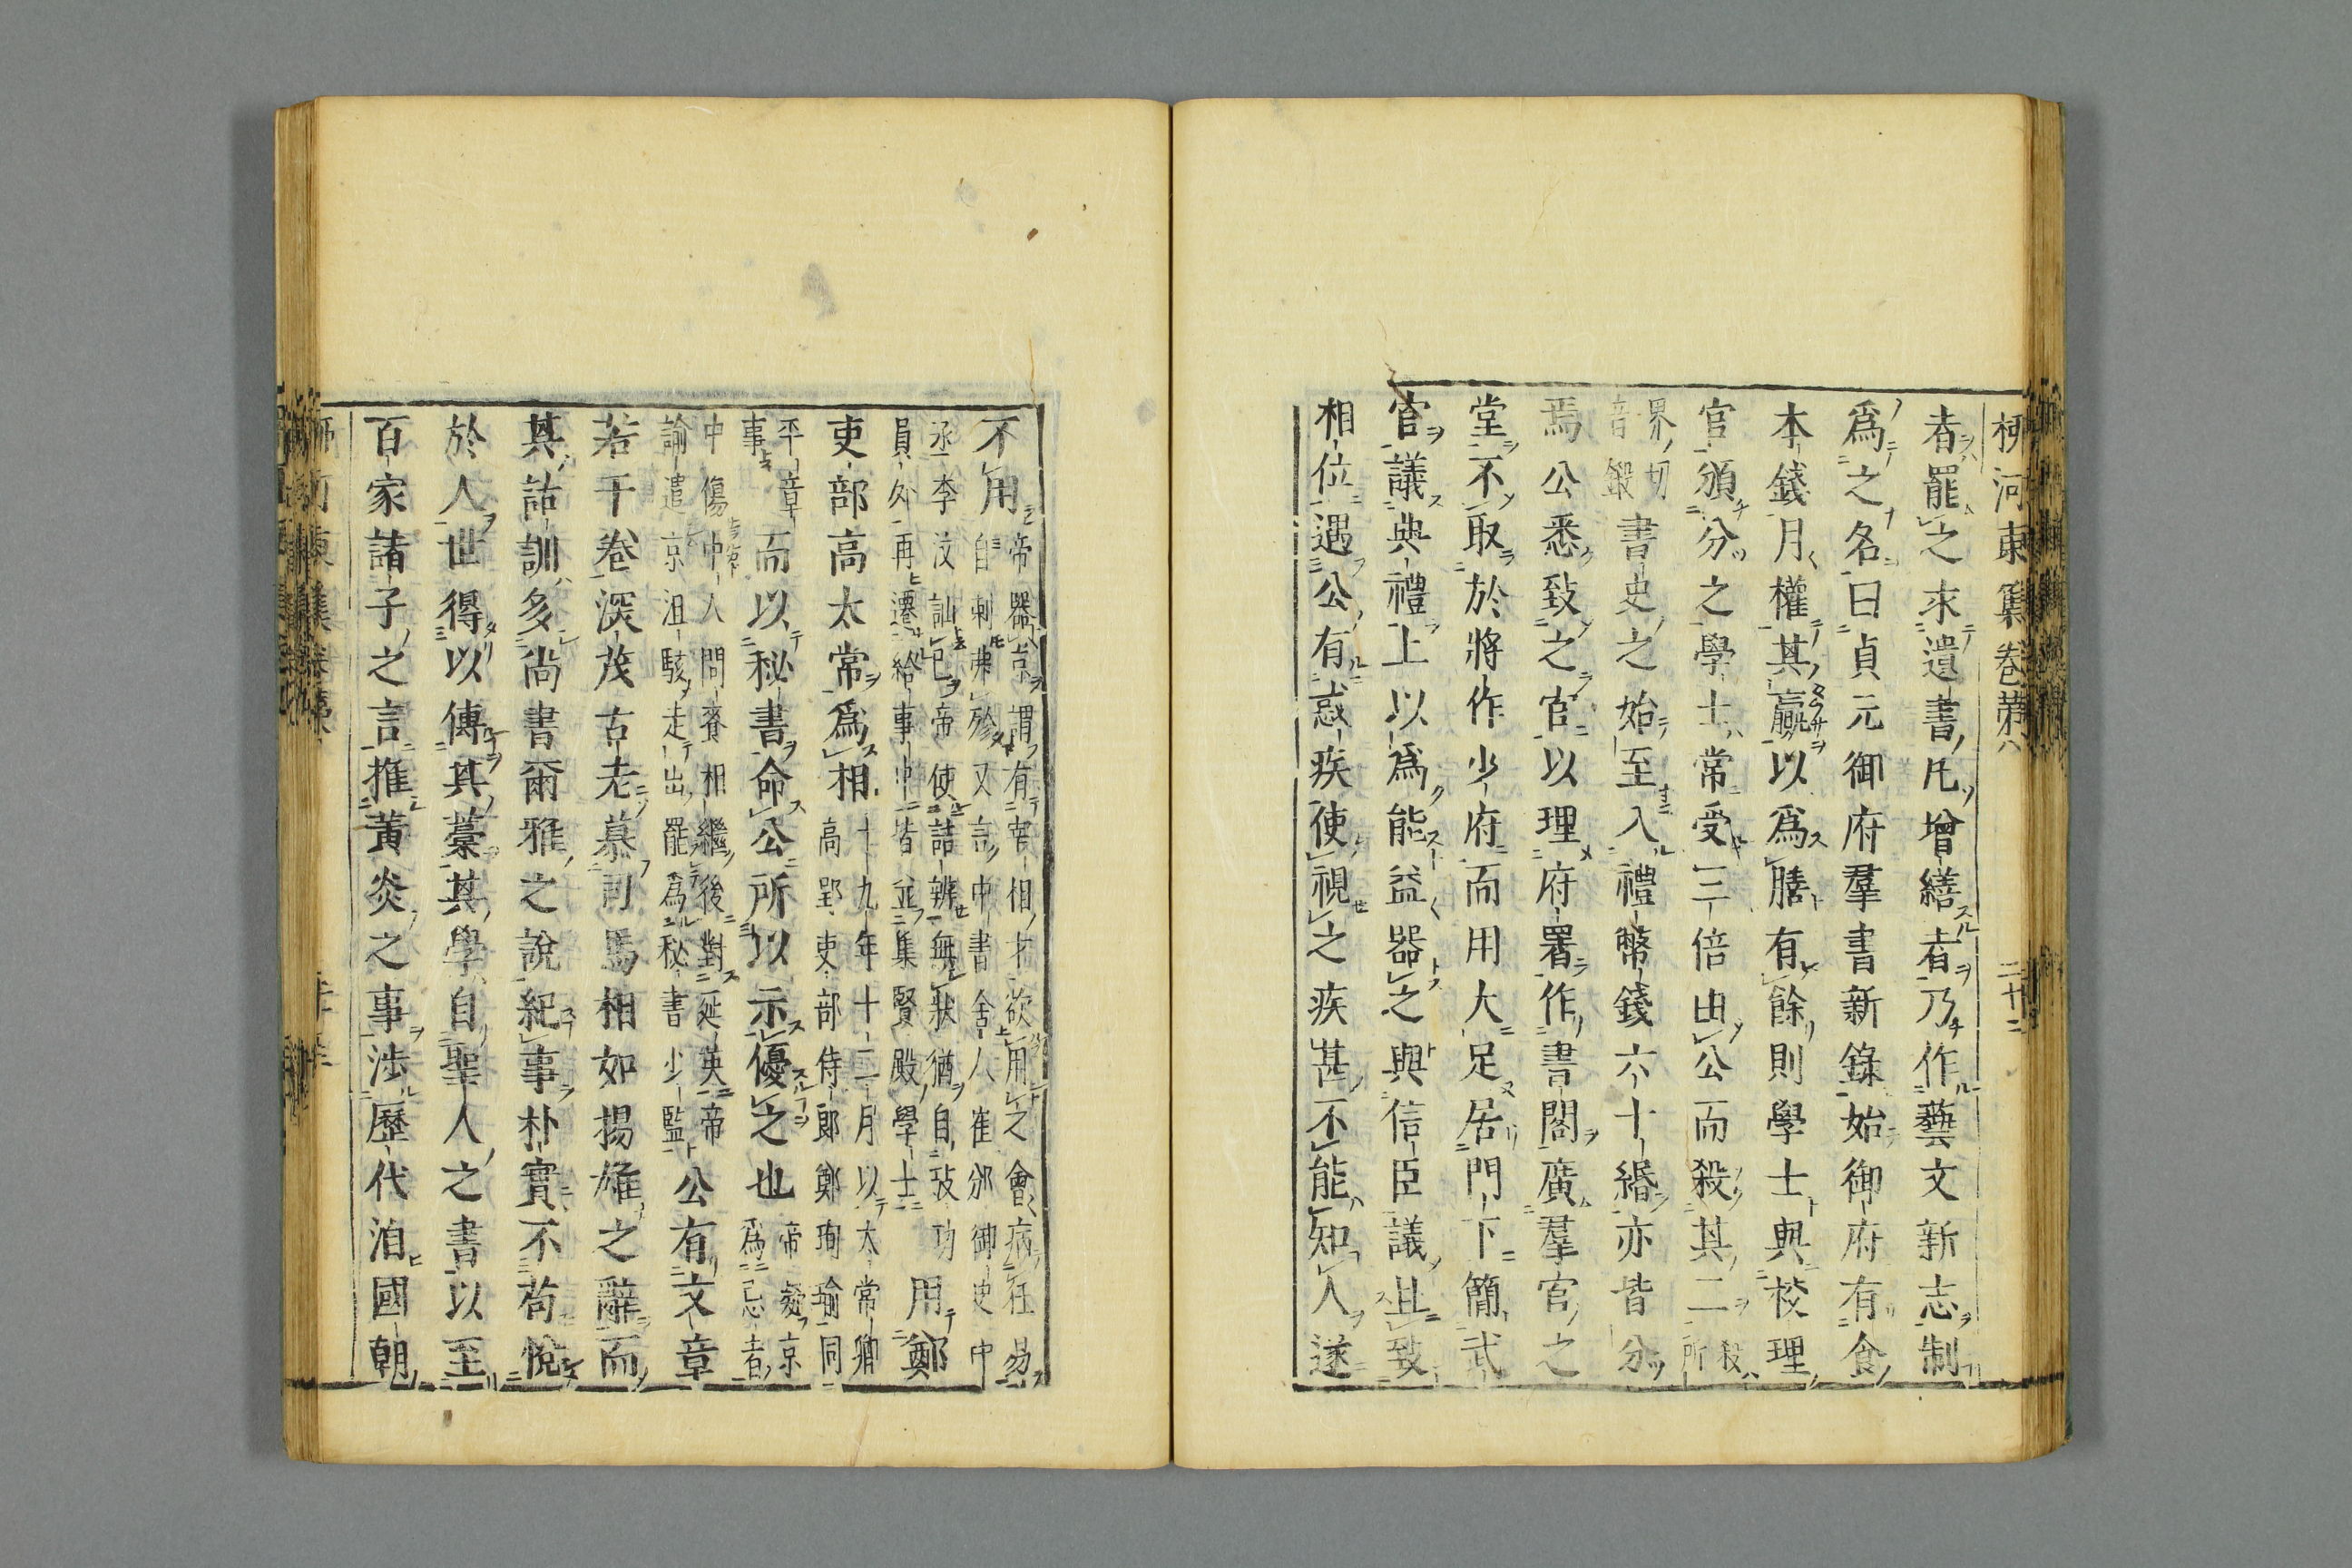 柳河東集卷第八 二十二
者罷之求遺書凡增繕者乃作藝文新志制
爲之名曰貞元御府羣書新錄始御府有食
本錢月權其贏以爲膳有餘則學士與校理
官頒分之學士常受三倍由公而殺其二殺所
界切音鎩書史之始至入禮幣錢六十緡亦皆分
焉公悉致之官以理府署作書閣廣羣官之
堂不取於將作少府而用大足居門下簡武
官議典禮上以爲能益器之與信臣議且致
相位遇公有惑疾使視之疾甚不能知人遂
不用帝器京謂有宰相才欲用之會病狂易
自刺弗殊又言中書舍人崔邠御史中
丞李汶訕己帝使詰辨無狀猶自效功用鄭
員外再遷給事中皆並集賢殿學士
吏部高太常爲相十九年十二月以太常卿
高郢吏部侍郎鄭珣瑜同
平章事而以秘書命公所以示優之也帝疑京爲忌者
中傷中人問賚相繼後對延英帝
諭遣京沮駭走出罷爲秘書少監公有文章
若干卷深茂古老慕司馬相如揚雄之辭而
其詁訓多尚書爾雅之說紀事朴實不苟悅
於人世得以傳其藁其學自聖人之書以至
百家諸子之言推黃炎之事涉歷代洎國朝